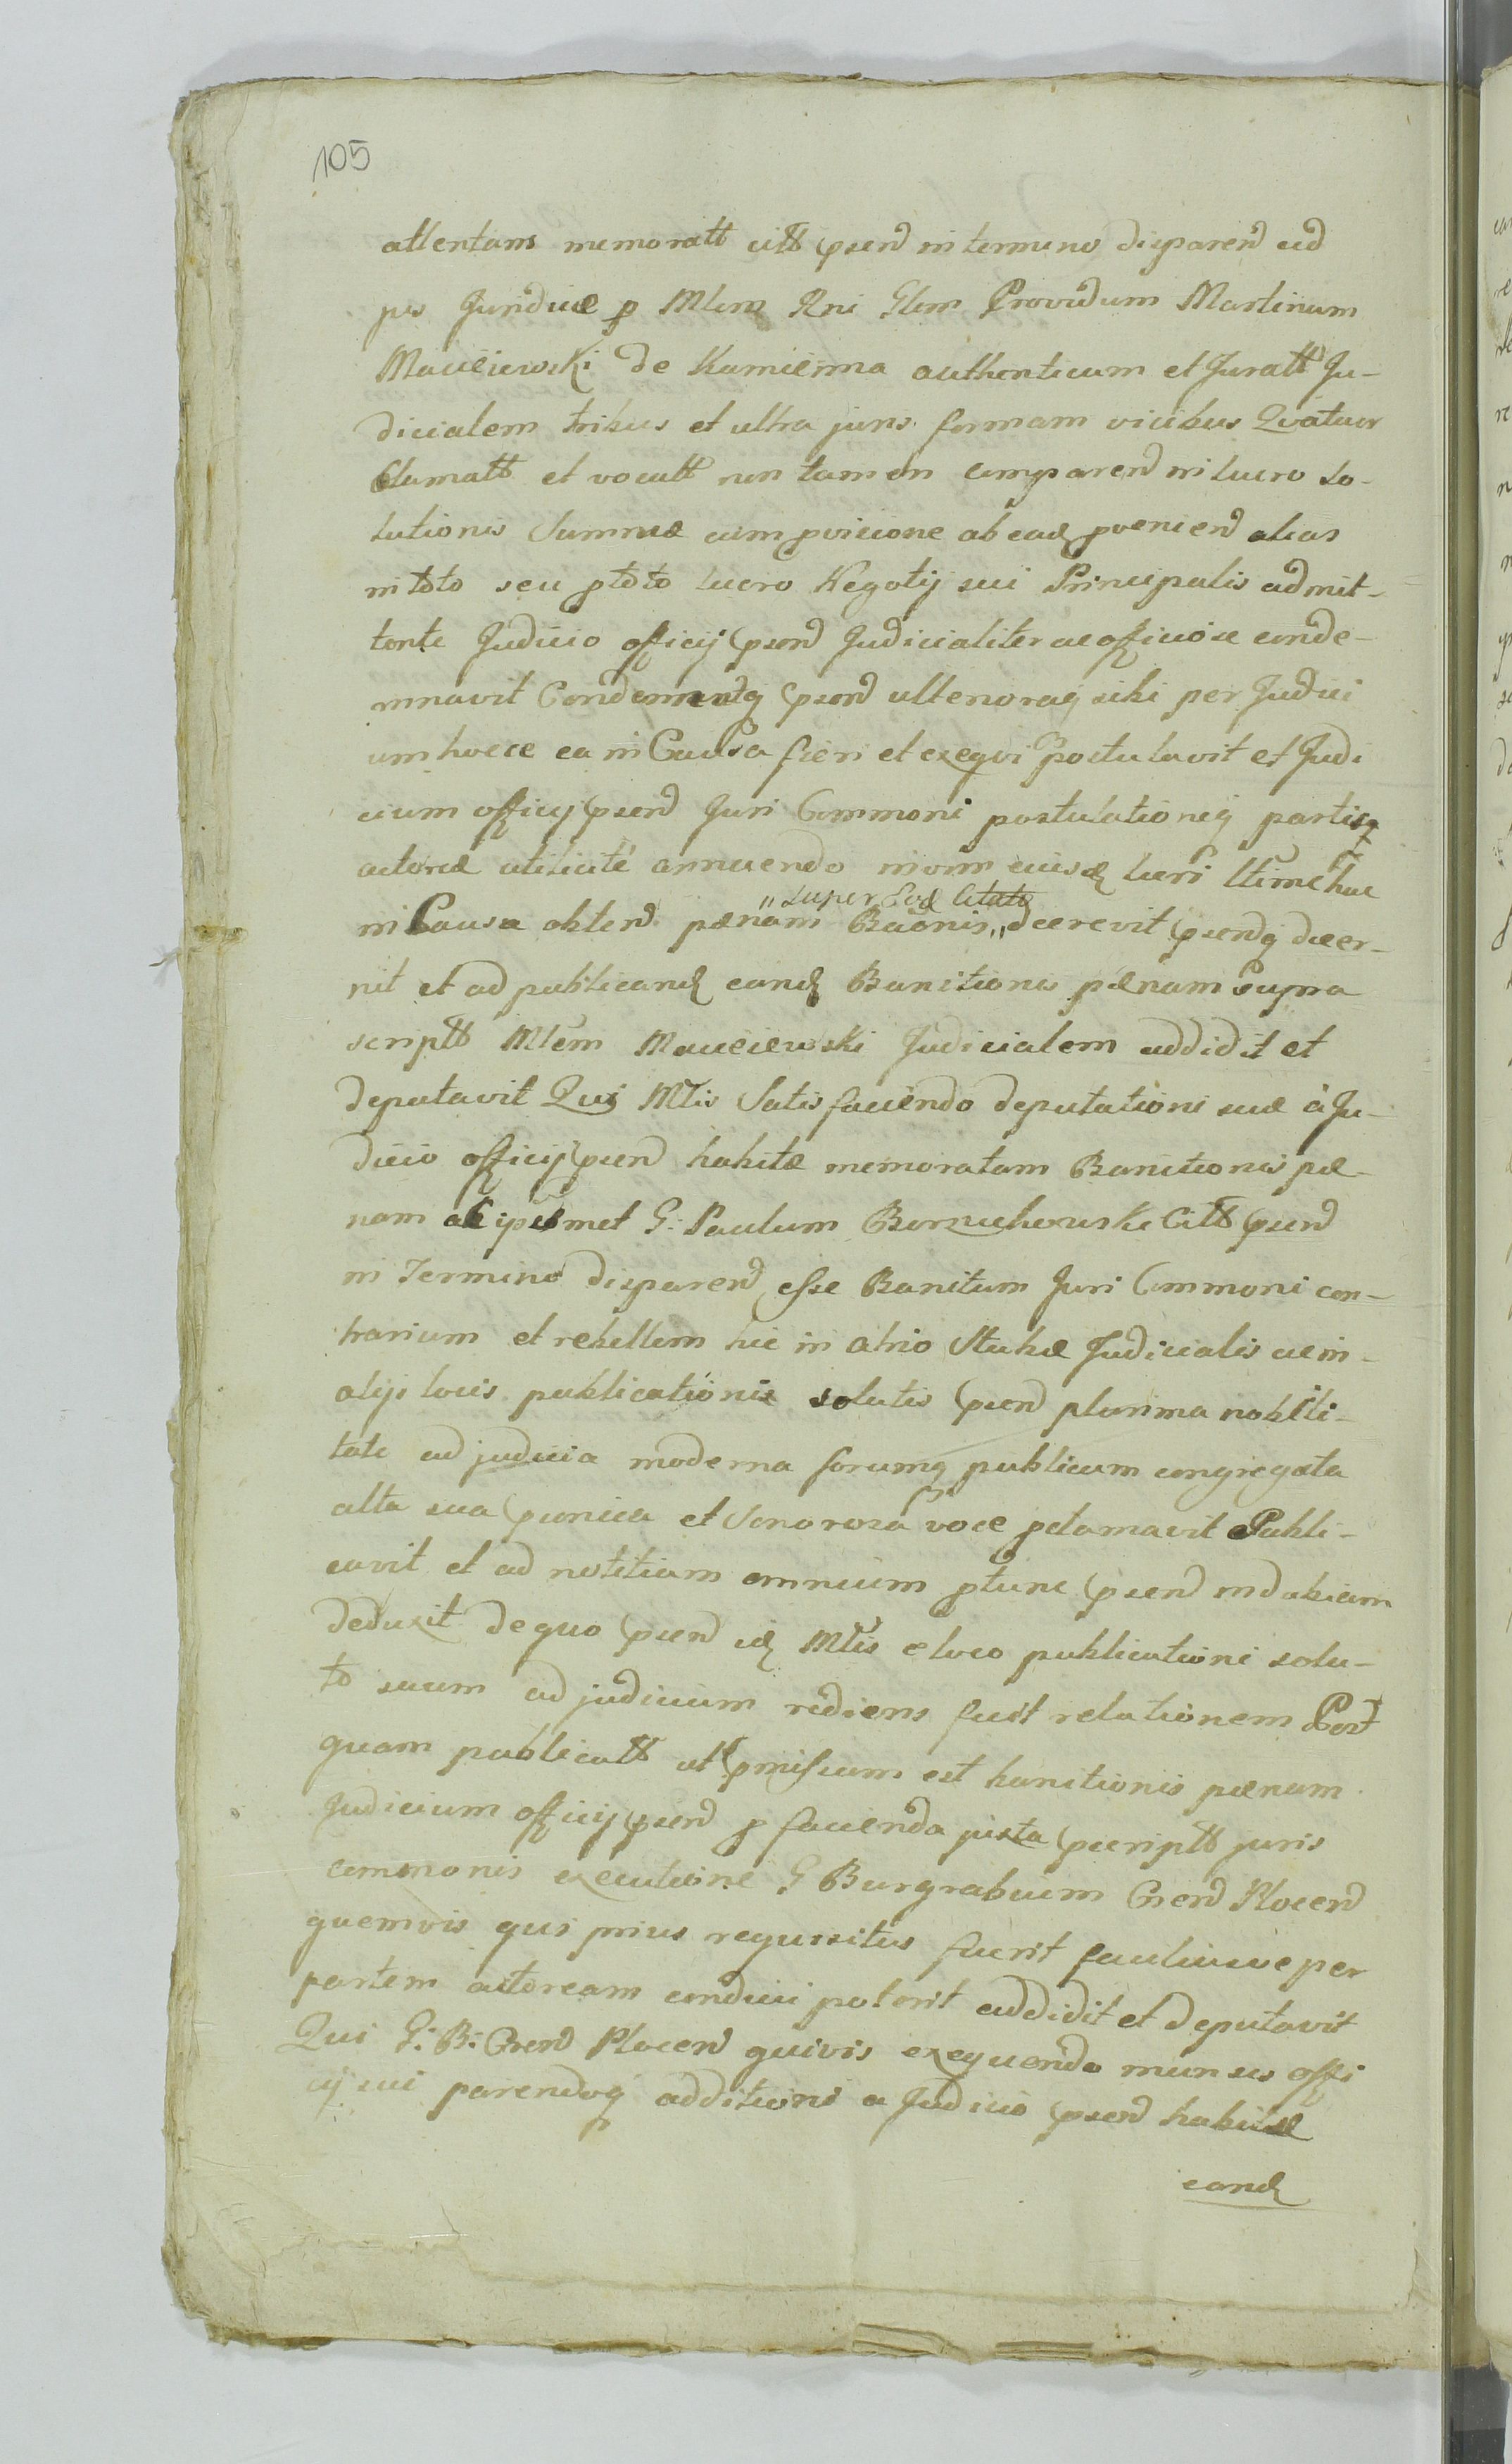 105
attentans memoratt citt psend in termino disparend ad
pns Juridice p Mlem Rni Glem Providum Martinum
Macieiewski de Kamienna authenticum et Juratt Ju-
dicialem tribus et ultra juris formam vicibus Quatuor
Clamatt et vocatt non tamen comparend in lucro so-
lutionis Summæ cum pvisione ab eadq pveniend alias
in toto seu ptoto lucro Negotij sui Principalis admit-
tente Judicio officij psend Judicialiter ac officiose conde-
mnavit Condemnatq psend ulterioraq sibi per Judici
um hocce ea in Causa fieri et exeqvi postulavit et Judi
cium officij psend Juri Commoni postulationiq partisq
actoreæ utilicite annuendo in vim eiusdq lucri ltime hac
"super Eodq Citato
in Causa obtend pænam Baonis" decrevit psendq decer-
nit et ad publicandq eandq Banitionis pænam supra
scriptt Mlem Macieiewski Judicialem addidit et
deputavit Qui Mtis Satisfaciendo deputationi suæ à Ju-
dicio officij psend habitæ memoratam Banitionis pæ-
nam ac ipsumet G: Paulum Borzuchowski Citt psend
in Termino disparend esse Banitum Juri Commoni con-
trarium et rebellem hic in atrio Stubæ Judicialis ac in
alijs locis publicationis solutis psend plurima nobili-
tate ad judicia moderna forumq publicum congregata
alta sua pconica et Sonorosa voce pclamavit Publi-
cavit et ad notitiam omnium ptunc psend indubiam
deduxit de quo psend idq Mtis e loco publicationi solu-
to suum ad judicium rediens fecit relationem Post
quam publicatt utt pmissum est banitionis pænam
Judicium officij psend p facienda juxta pscriptt juris
commonis executione G Burgrabium Crend Plocend
quemvis qui prius requisitus fuerit faciliusve per
partem actoream conduci poterit addidit et deputavit
Qui G: B: Crend Plocend quivis exequendo munus offi
cij sui parendoq additioni a Judicio psend habitæ
eandq